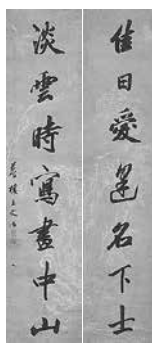 佳日愛延名下士
淡雲時寫畫中山